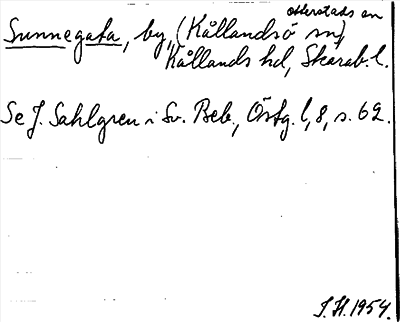 Otterstads sn
Sunnegata, by, (Kållandsö sn)
Kållands hd, Skarab. l.
Se J. Sahlgren i Sv. Beb., Östg. l, 8, s. 62.
J. H. 1954.